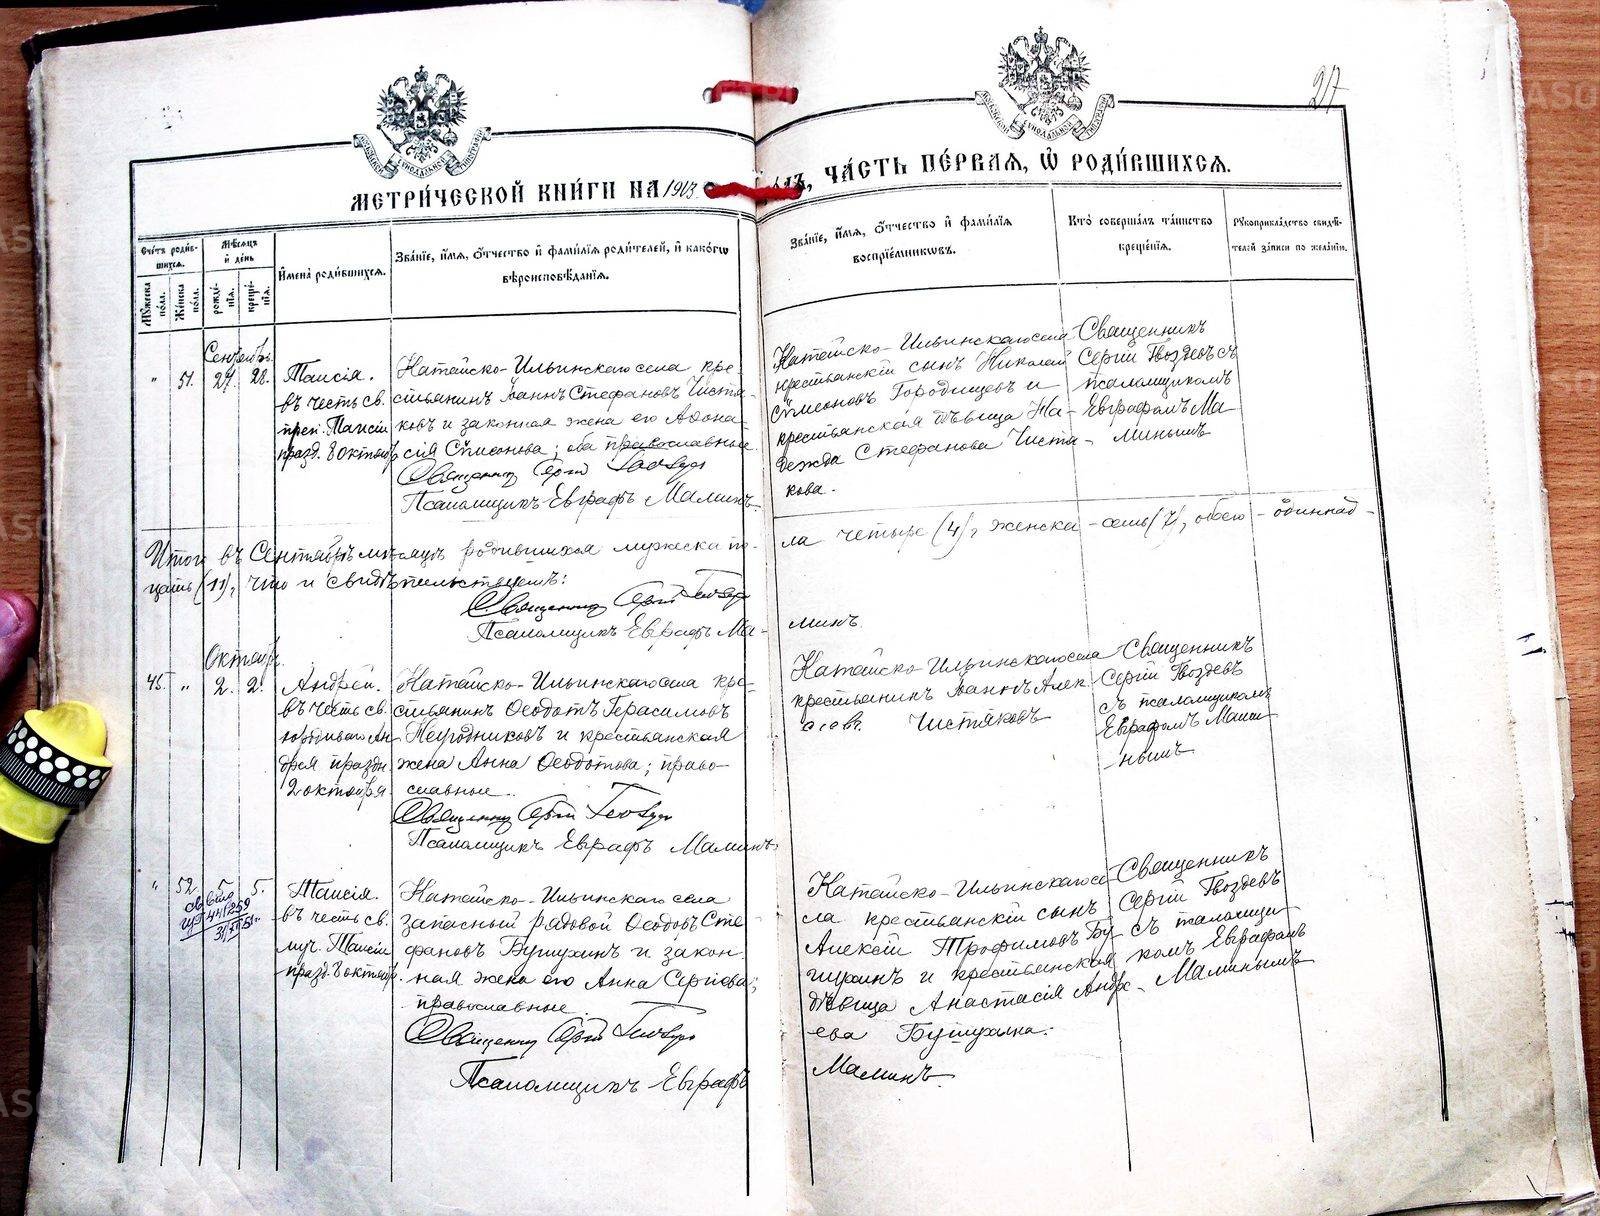 217
МЕТРИЧЕСКОЙ КНИГИ НА 1913
ЧАСТЬ ПЕРВАЯ, Ѿ РОДИВШИХСЯ.
Счетъ родив-
шихся.
Мѣсяцъ
и день
Мужеска пола.
Женска пола.
рожде-
нїя.
креще-
нїя.
Имена родившихся.
Званїе, имя, отчество и фамилїя родителей, и какогѡ
вѣроисповѣданїя.
Званїе, имя, отчество и фамилїя
воспрїемникѡвъ.
Кто совершалъ таинство
крещенїя.
Рукоприкладство свидѣ-
телей записи по желанїю.
Сентябрь
" 51. 27. 28.
Таисія.
въ честь св.
преп. Таисіи
празд. 8 октябр
Катайско-Ильинскаго села кре-
стьянинъ Іоаннъ Стефановъ Чистя-
ковъ и законная жена его Афона-
сія Симеонова; оба православные
Священникъ Сергій Гвоздевъ
Псаломщикъ Евграфъ Маминъ
Катайско-Ильинскаго села
крестьянскій сынъ Николай
Симеоновъ Городищевъ и
крестьянская дѣвица На-
дежда Стефанова Чистя-
кова.
Священникъ
Сергій Гвоздевъ съ
псаломщикомъ
Евграфомъ Ма-
минымъ
Итого въ Сентябрѣ мѣсяцѣ родившихся мужеска по-
ла четыре (4), женска - семь (7), обоего - одиннад-
цать (11), что и свидѣтельствуемъ:
Священникъ Сергій Гвоздевъ
Псаломщикъ Евграфъ Ма-
минъ
Октябрь
45. " 2. 2.
Андрей.
въ честь св.
юродиваго Ан-
дрея праздн
2 октября.
Катайско-Ильинскаго села кре-
стьянинъ Ѳеодотъ Герасимовъ
Неугодниковъ и крестьянская
жена Анна Ѳеодотова; право-
славные.
Священникъ Сергій Гвоздевъ
Псаломщикъ Евграфъ Маминъ
Катайско-Ильинскаго села
крестьянинъ Іоаннъ Алек-
Чистяковъ
Священникъ
Сергій Гвоздевъ
съ псаломщикомъ
Евграфомъ Мами-
нымъ
" 52. 5. 5.
Таисія.
въ честь св.
муч. Таисіи
празд. 8 октябр.
Катайско-Ильинскаго села
запасный рядовой Ѳеодоръ Сте-
фановъ Бушухинъ и закон-
ная жена его Анна Сергіева;
православные.
Священникъ Сергій Гвоздевъ
Псаломщикъ Евграфъ
Катайско-Ильинскаго се-
ла крестьянскій сынъ
Алексій Трофимовъ Бу-
и крестьянская
дѣвица Анастасія Андре-
ева
Маминъ
Священникъ
Сергій Гвоздевъ
съ псаломщи-
комъ Евграфомъ
Маминымъ